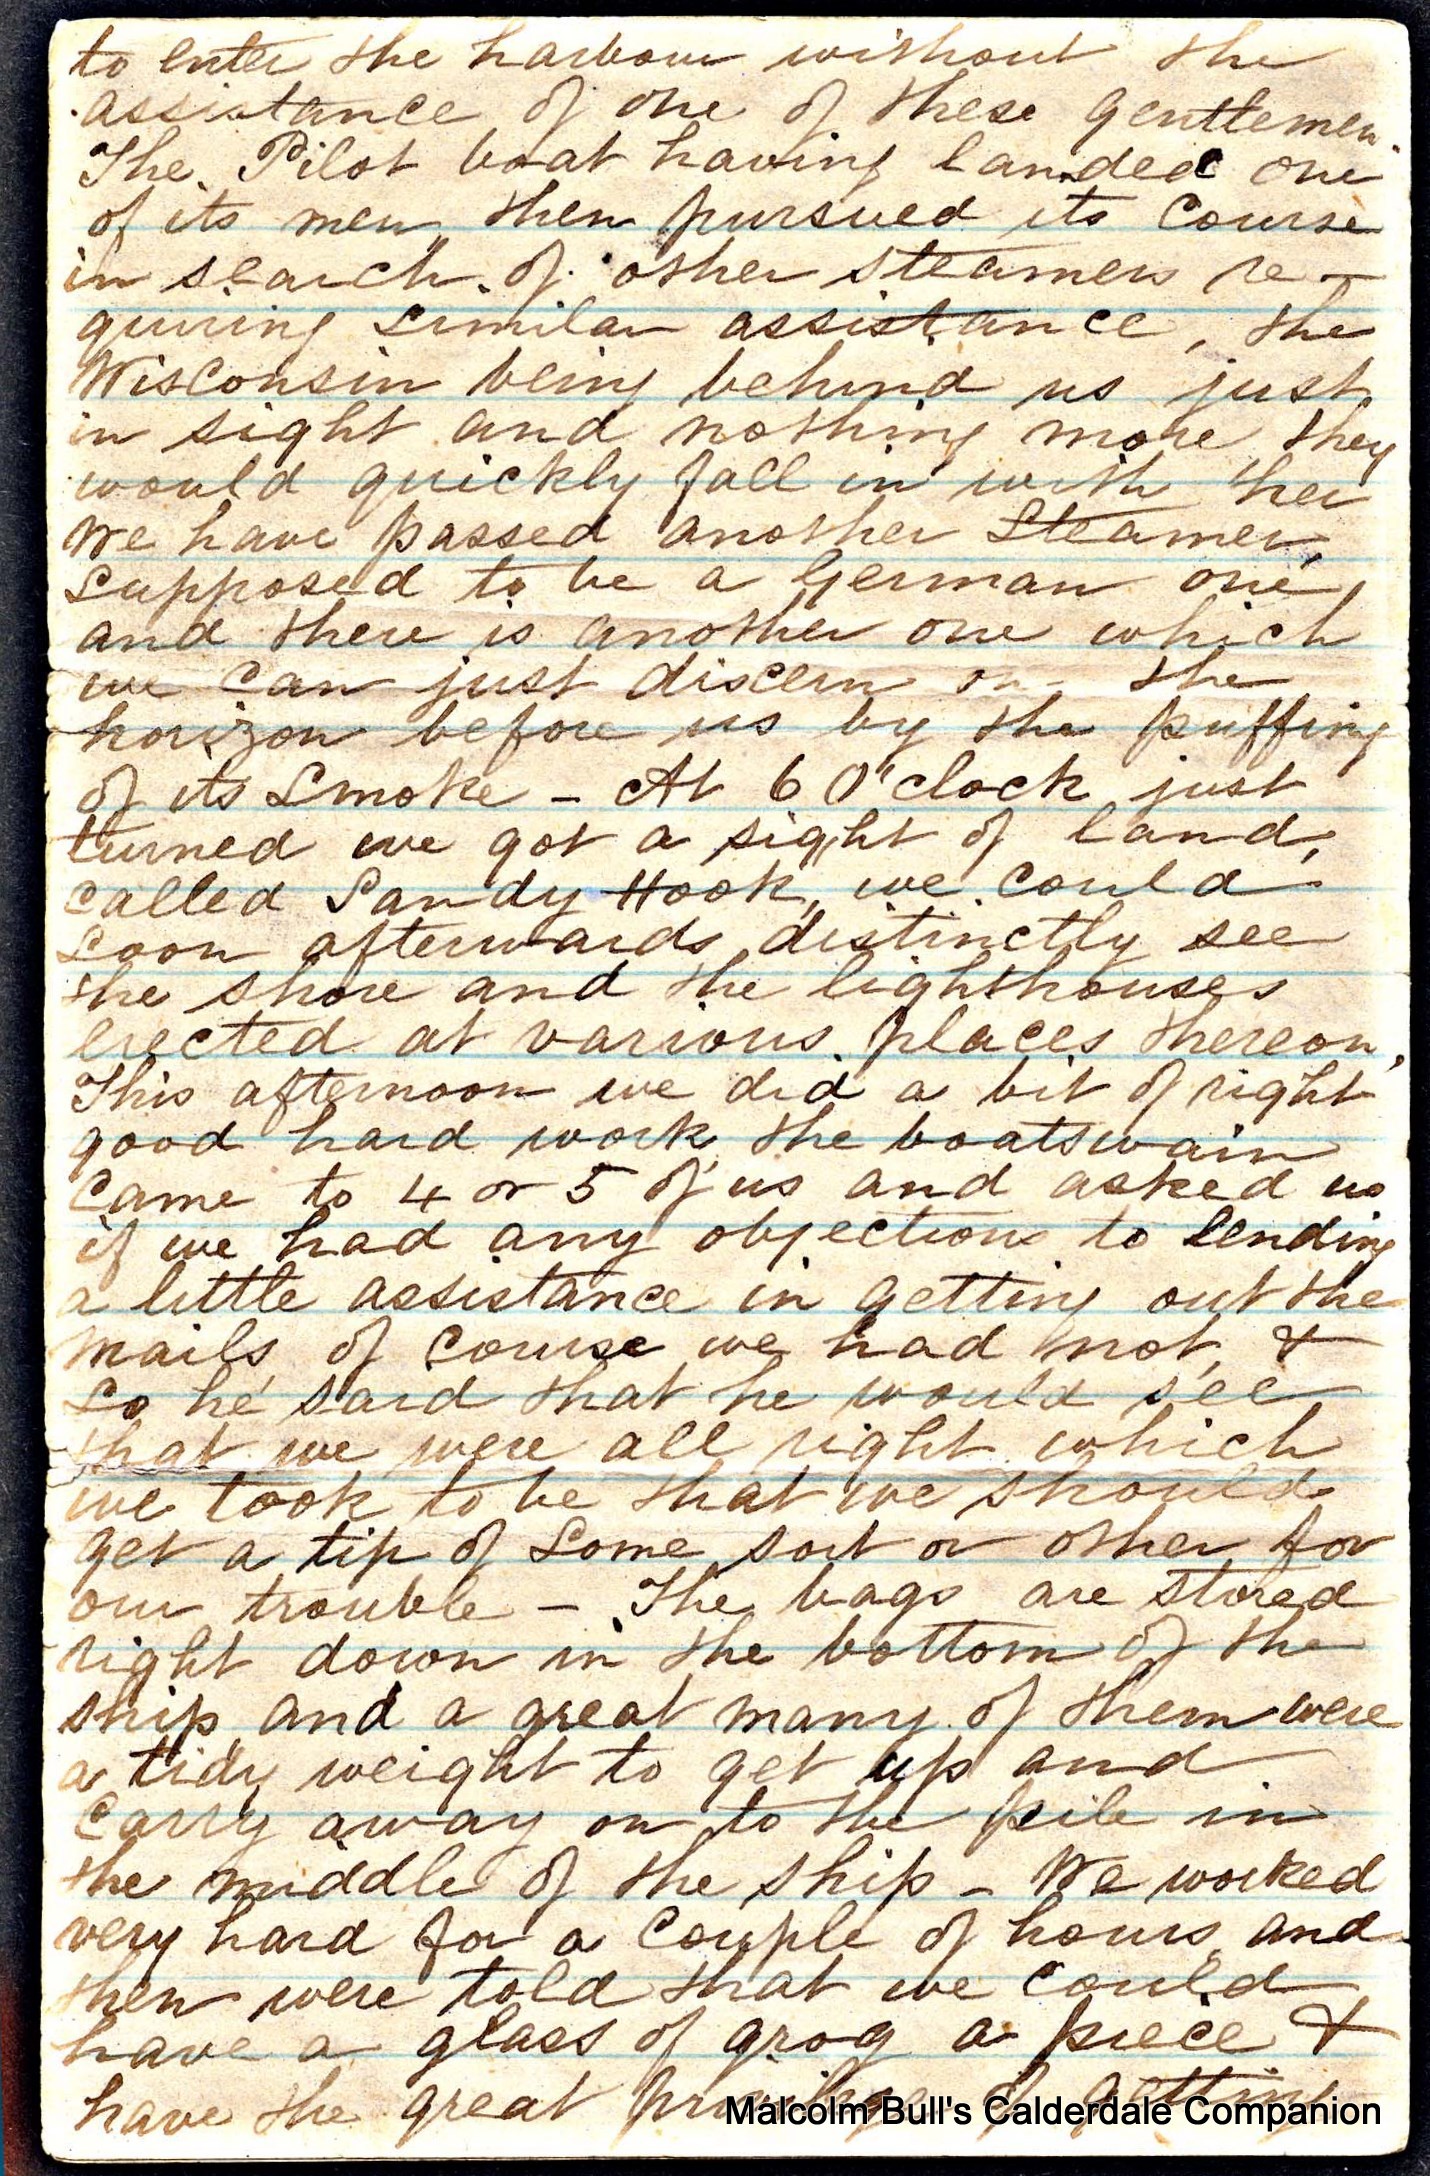 to enter the harbour without the
assistance of one of these gentlemen.
The Pilot boat having landed one
of its men, then pursued its course
in search of other steamers re-
quiring similar assistance, the
Wisconsin being behind us just
in sight and nothing more, they
would quickly fall in with her
We have passed another steamer,
supposed to be a German one,
and there is another one which
we can just discern on the
horizon before us by the puffing
of its smoke - At 6 O'clock just
turned we got a sight of land,
called Sandy Hook, we could
soon afterwards distinctly see
the shore and the lighthouses
erected at various places thereon,
This afternoon we did a bit of right
good hard work, the boatswain
came to 4 or 5 of us and asked us
if we had any objections to lending
a little assistance in getting out the
mails, of course we had not, &
so he said that he would see
that we were all right which
we took to be that we should
get a tip of some sort or other for
our trouble - The bags are stored
right down in the bottom of the
ship, and a great many of them were
a tidy weight to get up and
carry away on to the pile in
the middle of the ship - We worked
very hard for a couple of hours, and
then were told that we could
have a glass of grog a piece &
have the great privilege of getting
Malcolm Bull's Calderdale Companion